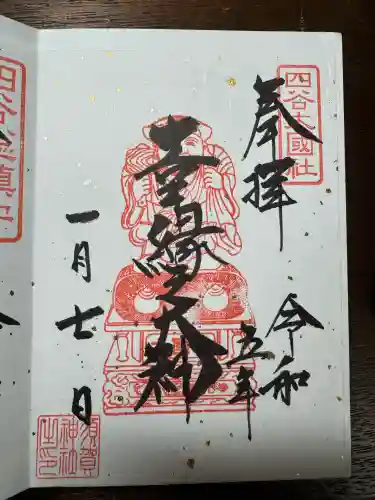 四谷大國社
奉拝
令和
五年
幸縁之大神
一月七日
須賀
神社
之印